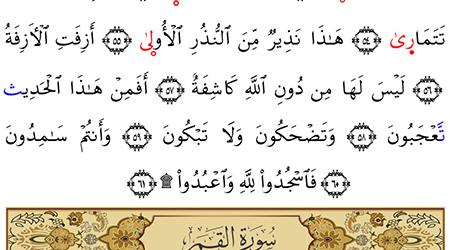 تَتَمَارٜىٰ ﴿٥٤﴾ هَـٰذَا نَذِيرٌ مِّنَ ٱلنُّذُرِ ٱلْأُولٜىٰٓ ﴿٥٥﴾ أَزِفَتِ ٱلْأَزِفَةُ
﴿٥٦﴾ لَيْسَ لَهَا مِن دُونِ ٱللَّهِ كَاشِفَةٌ ﴿٥٧﴾ أَفَمِنْ هَـٰذَا ٱلْحَدِيث
تَّعْجَبُونَ ﴿٥٨﴾ وَتَضْحَكُونَ وَلَا تَبْكُونَ ﴿٥٩﴾ وَأَنتُمْ سَـٰمِدُونَ
﴿٦٠﴾ فَٱسْجُدُوا۟ لِلَّهِ وَٱعْبُدُوا۟ ۩ ﴿٦١﴾
سُورَةُ القَمَرِ